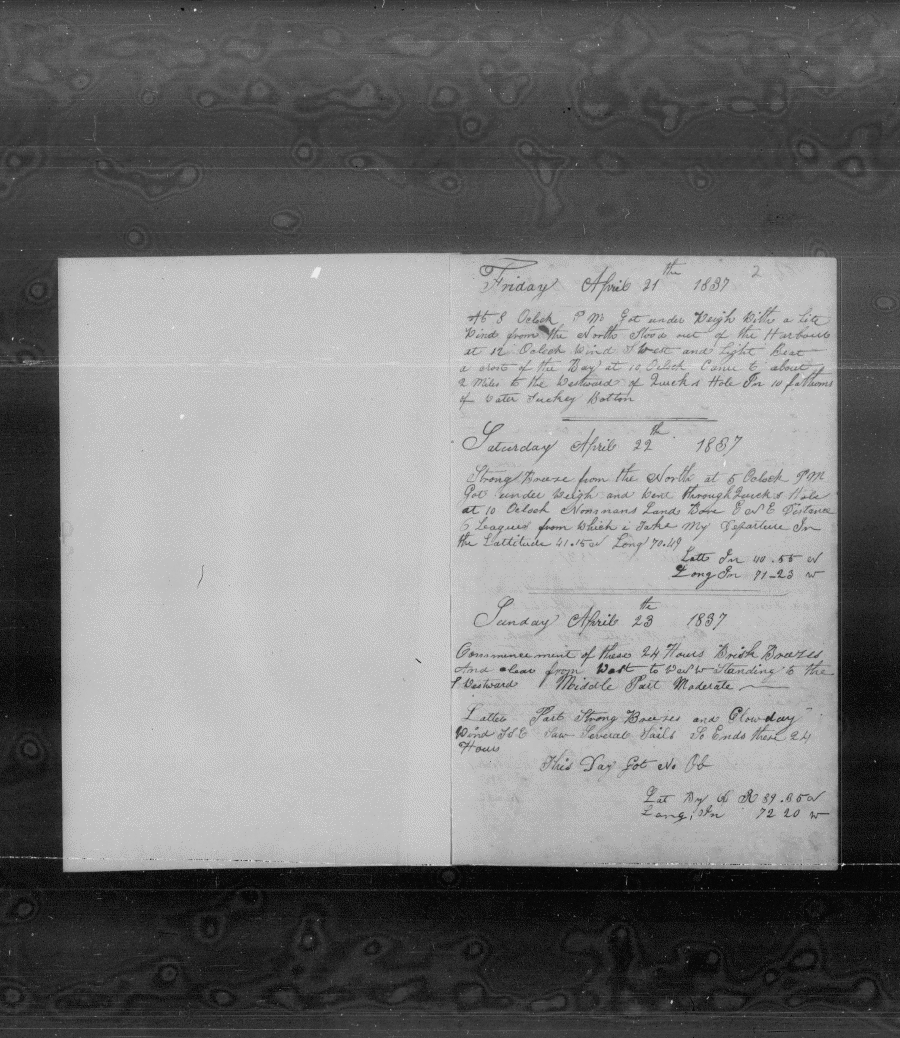 2
Friday April 21th 1837
At 8 Oclock P M Got under Weigh With a Lite
Wind from the North Stood out of the Harbour
at 12 Oclock Wind S West and Light Beat
a cross of the Bay at 10 Oclock Came to about
2 Miles to the Westward of Quicks Hole In 10 fathoms
of Water Bottom
Saturday April 22th 1837
Strong Breeze from the North at 5 Oclock P M
Got under Weigh and Went through Quicks Hole
at 10 Oclock Nommans Land Bore E N E Distance
6 Leagues from Which i Take My Departure In
the Lattitude 41.15 N Long 70.49
Latt In 40.55 N
Long In 71-23 W
Sunday April 23th 1837
Commencement of these 24 Hours Brisk Breezes
And clear from West to W N W Standing to the
S Westward Middle Part Moderate
Latter Part Strong Breezes and Clowday
Wind S S E Saw Several Sails So Ends these 24
Hours
This Day Got No Ob
Lat By D R 39.35 N
Long, In 72 20 W